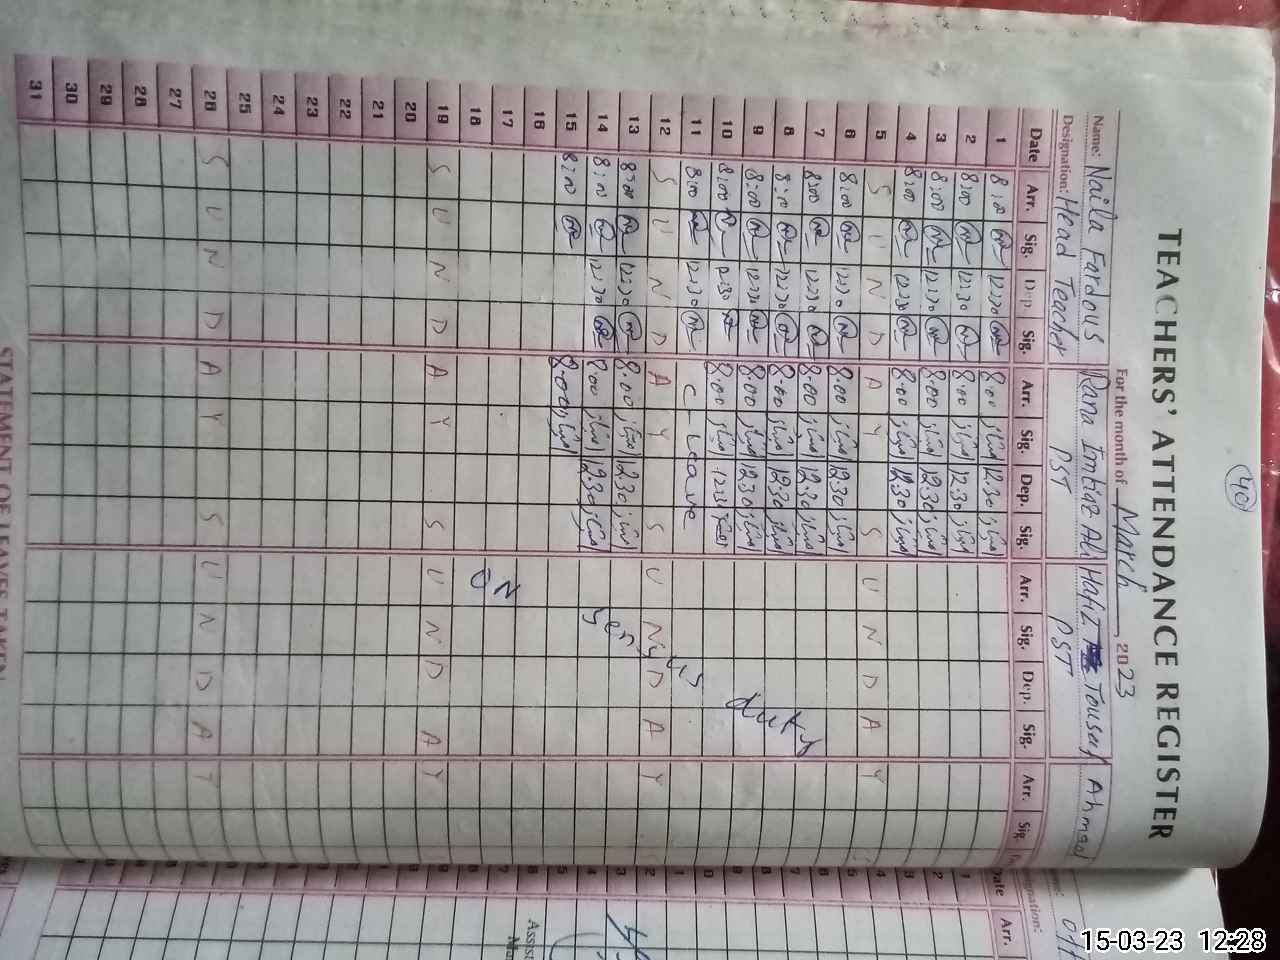 40
TEACHERS' ATTENDANCE REGISTER
For the month of March, 2023
Name: Naila Fardous Rana Imtiaz Ali Hafiz Tousaf Ahmad
Designation: Head Teacher PST PST
Date Arr. Sig. Dep. Sig. Arr. Sig. Dep. Sig. Arr. Sig. Dep. Sig. Arr. Sig.
1 8:00 12:30 8:00 12:30
2 8:00 12:30 8:00 12:30
3 8:00 12:30 8:00 12:30
4 8:00 12:30 8:00 12:30
5 S U N D A Y S U N D A Y
6 8:00 12:30 8:00 12:30
7 8:00 12:30 8:00 12:30
8 8:00 12:30 8:00 12:30
9 8:00 12:30 8:00 12:30
10 8:00 12:30 8:00 12:30
11 8:00 12:30 C-Leave
12 S U N D A Y S U N D A Y
13 8:00 12:30 8:00 12:30
14 8:00 12:30 8:00 12:30
15 8:00 8:00
16
17
18
ON
duty
19 S U N D A Y S U N D A Y
20
21
22
23
24
25
26 S U N D A Y S U N D A Y
27
28
29
30
31
STATEMENT OF LEAVES TAKEN
Date Arr.
15-03-23 12:28